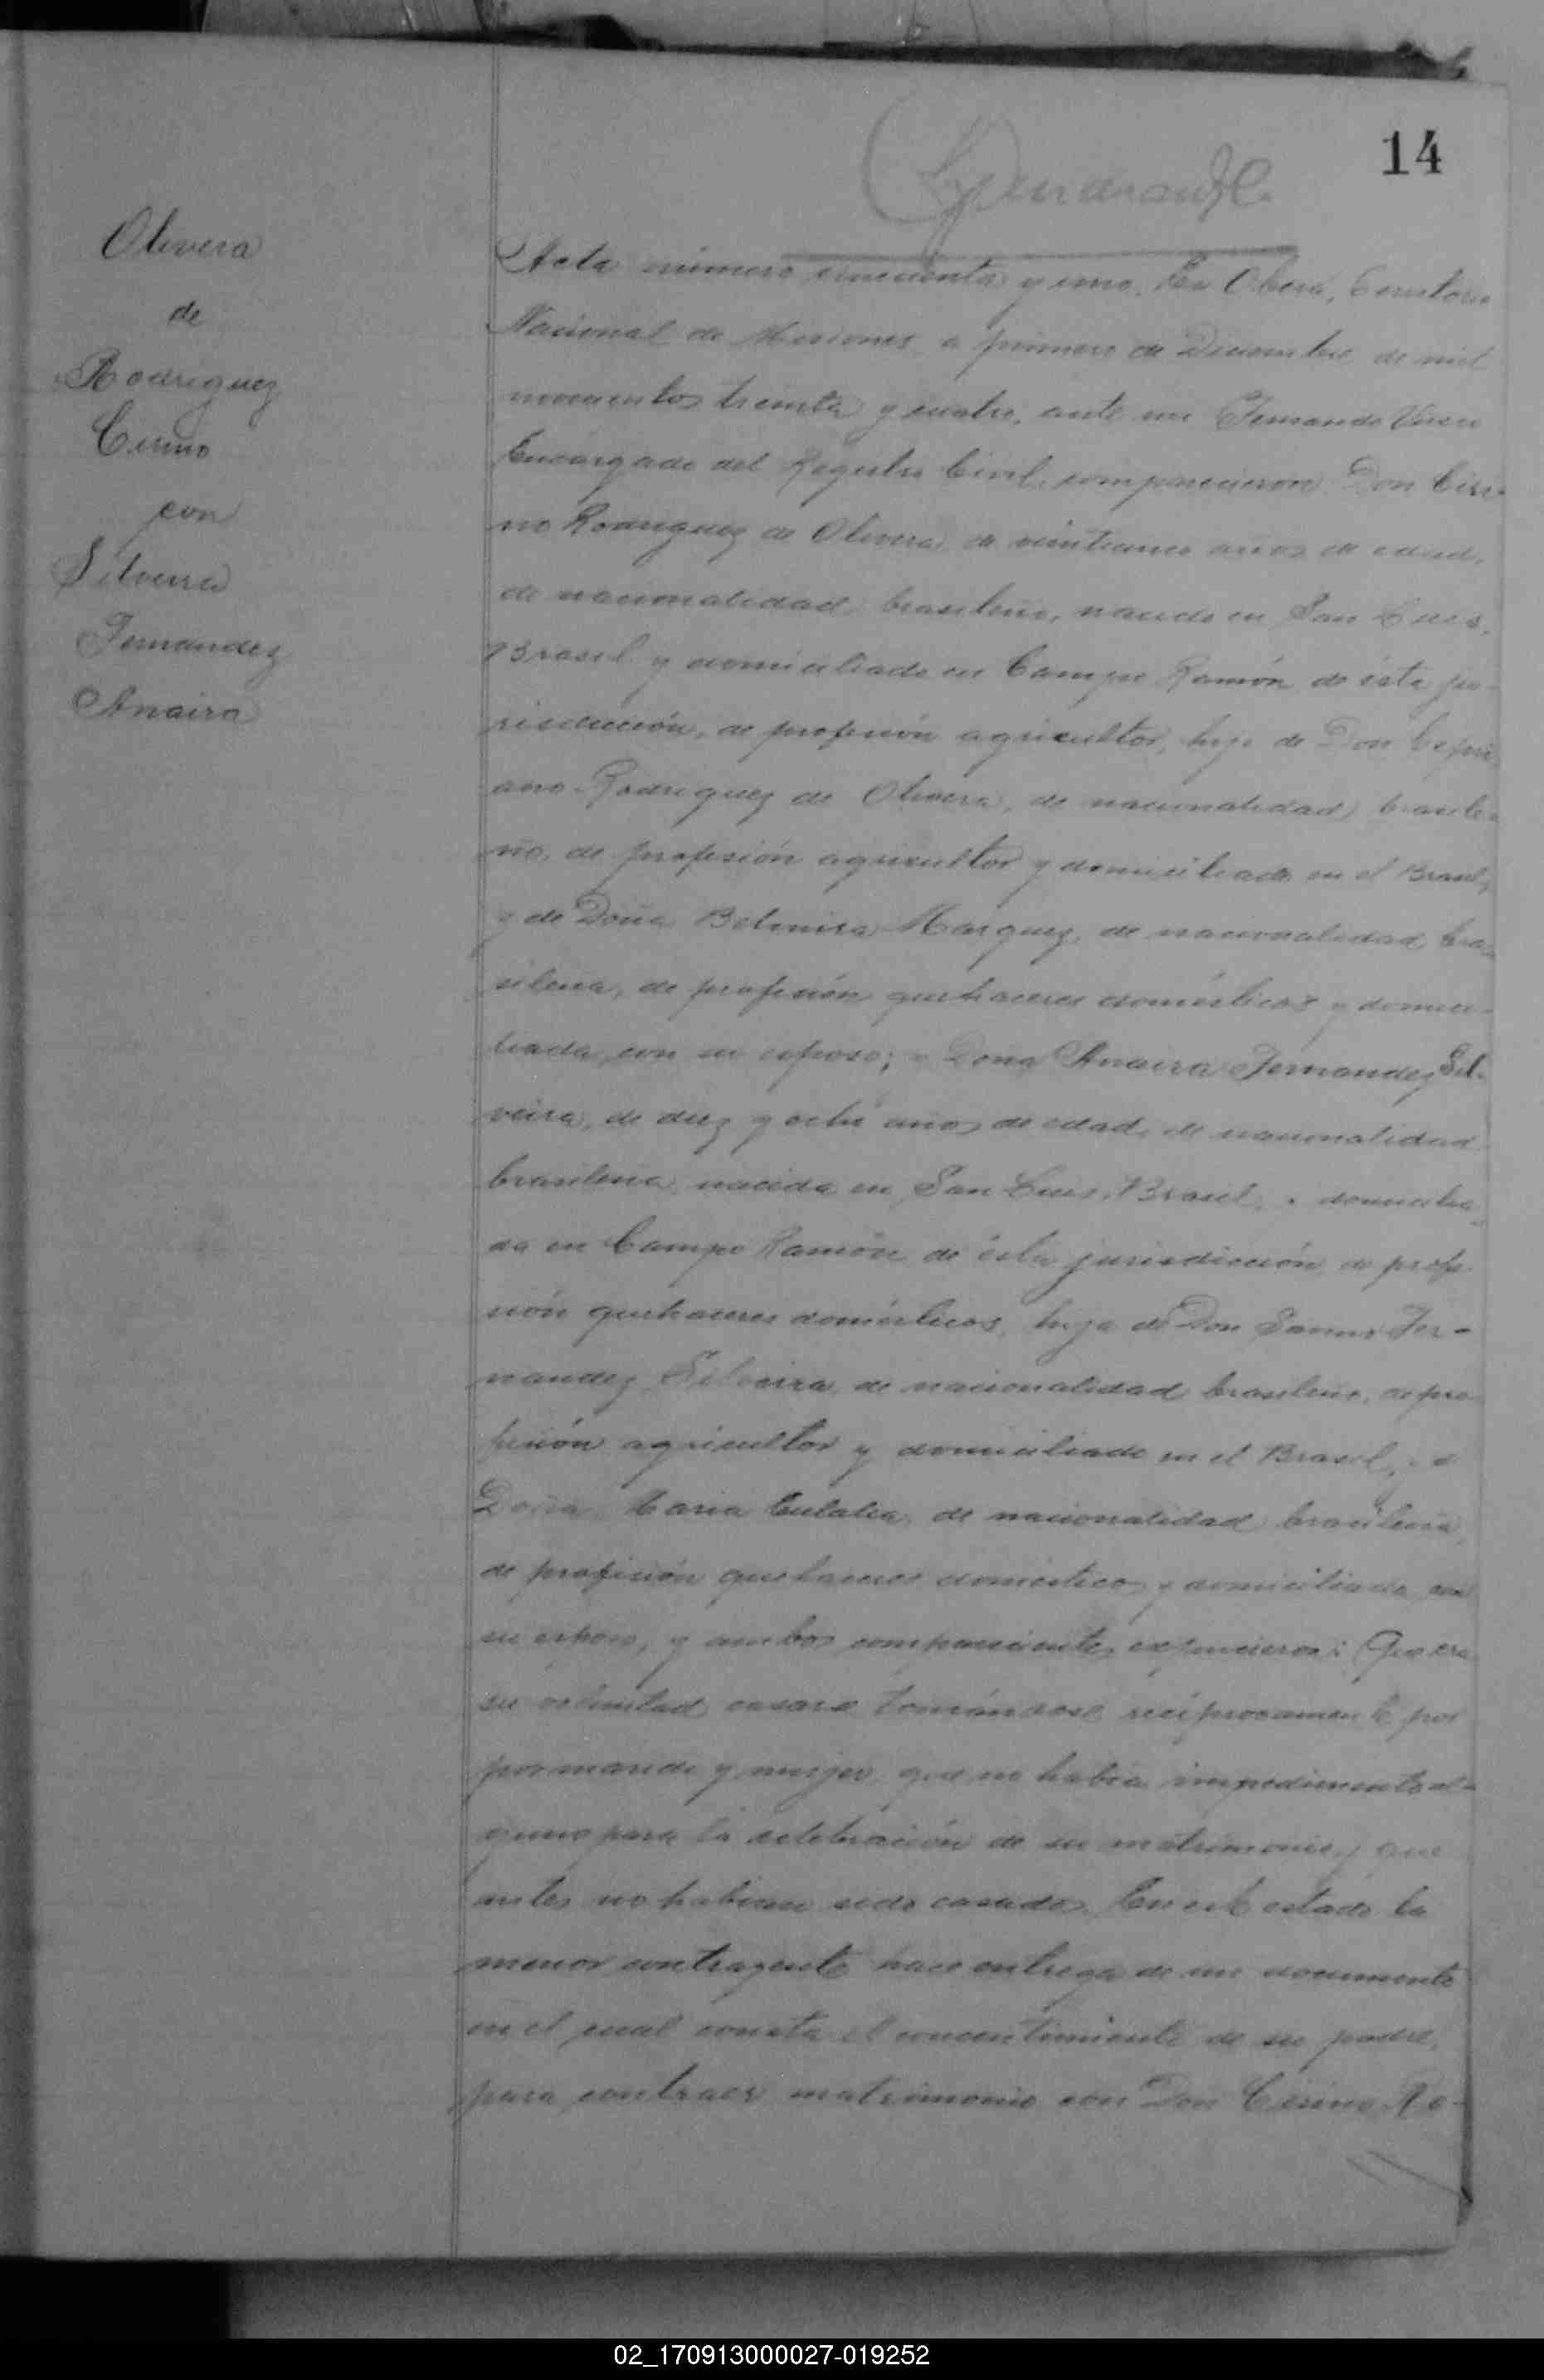 14
Olivera
de
Rodriguez
Cirino
con
Silveira
Fernandez
Anaira
Acta número cincuenta y uno. En Oberá, Territorio
Nacional de Misiones a primero de Diciembre de mil
novecientos treinta y cuatro, ante mi Fernando
Encargado del Registro Civil, comparecieron Don Ciri-
no Rodriguez de Olivera, de años de edad,
de nacionalidad brasileño, nacido en San Luis,
Brasil y domiciliado en Campo Ramón de ésta ju-
risdicción, de profesión agricultor, hijo de Don Cipri
ano Rodriguez de Olivera, de nacionalidad brasile-
ño, de profesión agricultor y domiciliado en el Brasil,
y de Doña Belmira Marquez, de nacionalidad bra-
sileña, de profesión quehaceres domésticos y domici-
liada con su esposo; y Doña Anaira Fernandez Sil-
veira, de diez y ocho años de edad, de nacionalidad
brasileña, nacida en San Luis, Brasil, y domicilia-
da en Campo Ramón de ésta jurisdicción, de profe
sión quehaceres domésticos, hija de Don Fer-
nandez Silveira, de nacionalidad brasileño, de pro
fesión agricultor y domiciliado en el Brasil, y de
Doña Eulalia, de nacionalidad brasileña,
de profesión quehaceres domésticos y domiciliada con
su esposo, y ambos comparecientes expusieron: Que era
su voluntad casarse tomándose recíprocamente por
por marido y mujer, que no había impedimento al-
guno para la celebración de su matrimonio y que
antes no habían sido casados. En este estado la
menor contrayente hace entrega de un documento
en el cual consta el concentimiento de su padre,
para contraer matrimonio con Don Cirino Ro-
02_170913000027-019252